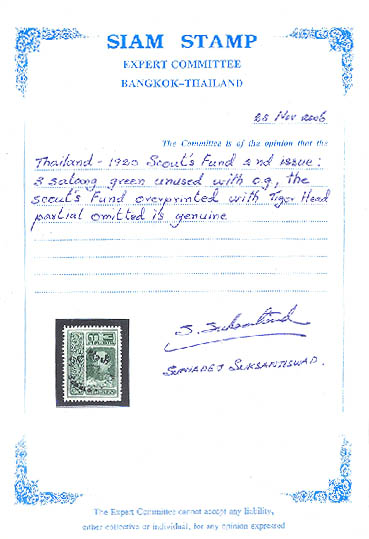 SIAM STAMP
EXPERT COMMITTEE
BANGKOK-THAILAND
25 Nov 2006
The Committee is of the opinion that the
Thailand - 1920 Scout's Fund 2nd issue:
3 satang green unused with o.g, the
scout's Fund overprinted with Tiger Head
partial omitted is genuine
S. Suksantisud
SUKSANTISWAD.
The Expert Committee cannot accept any liability,
either collective or individual, for any opinion expressed